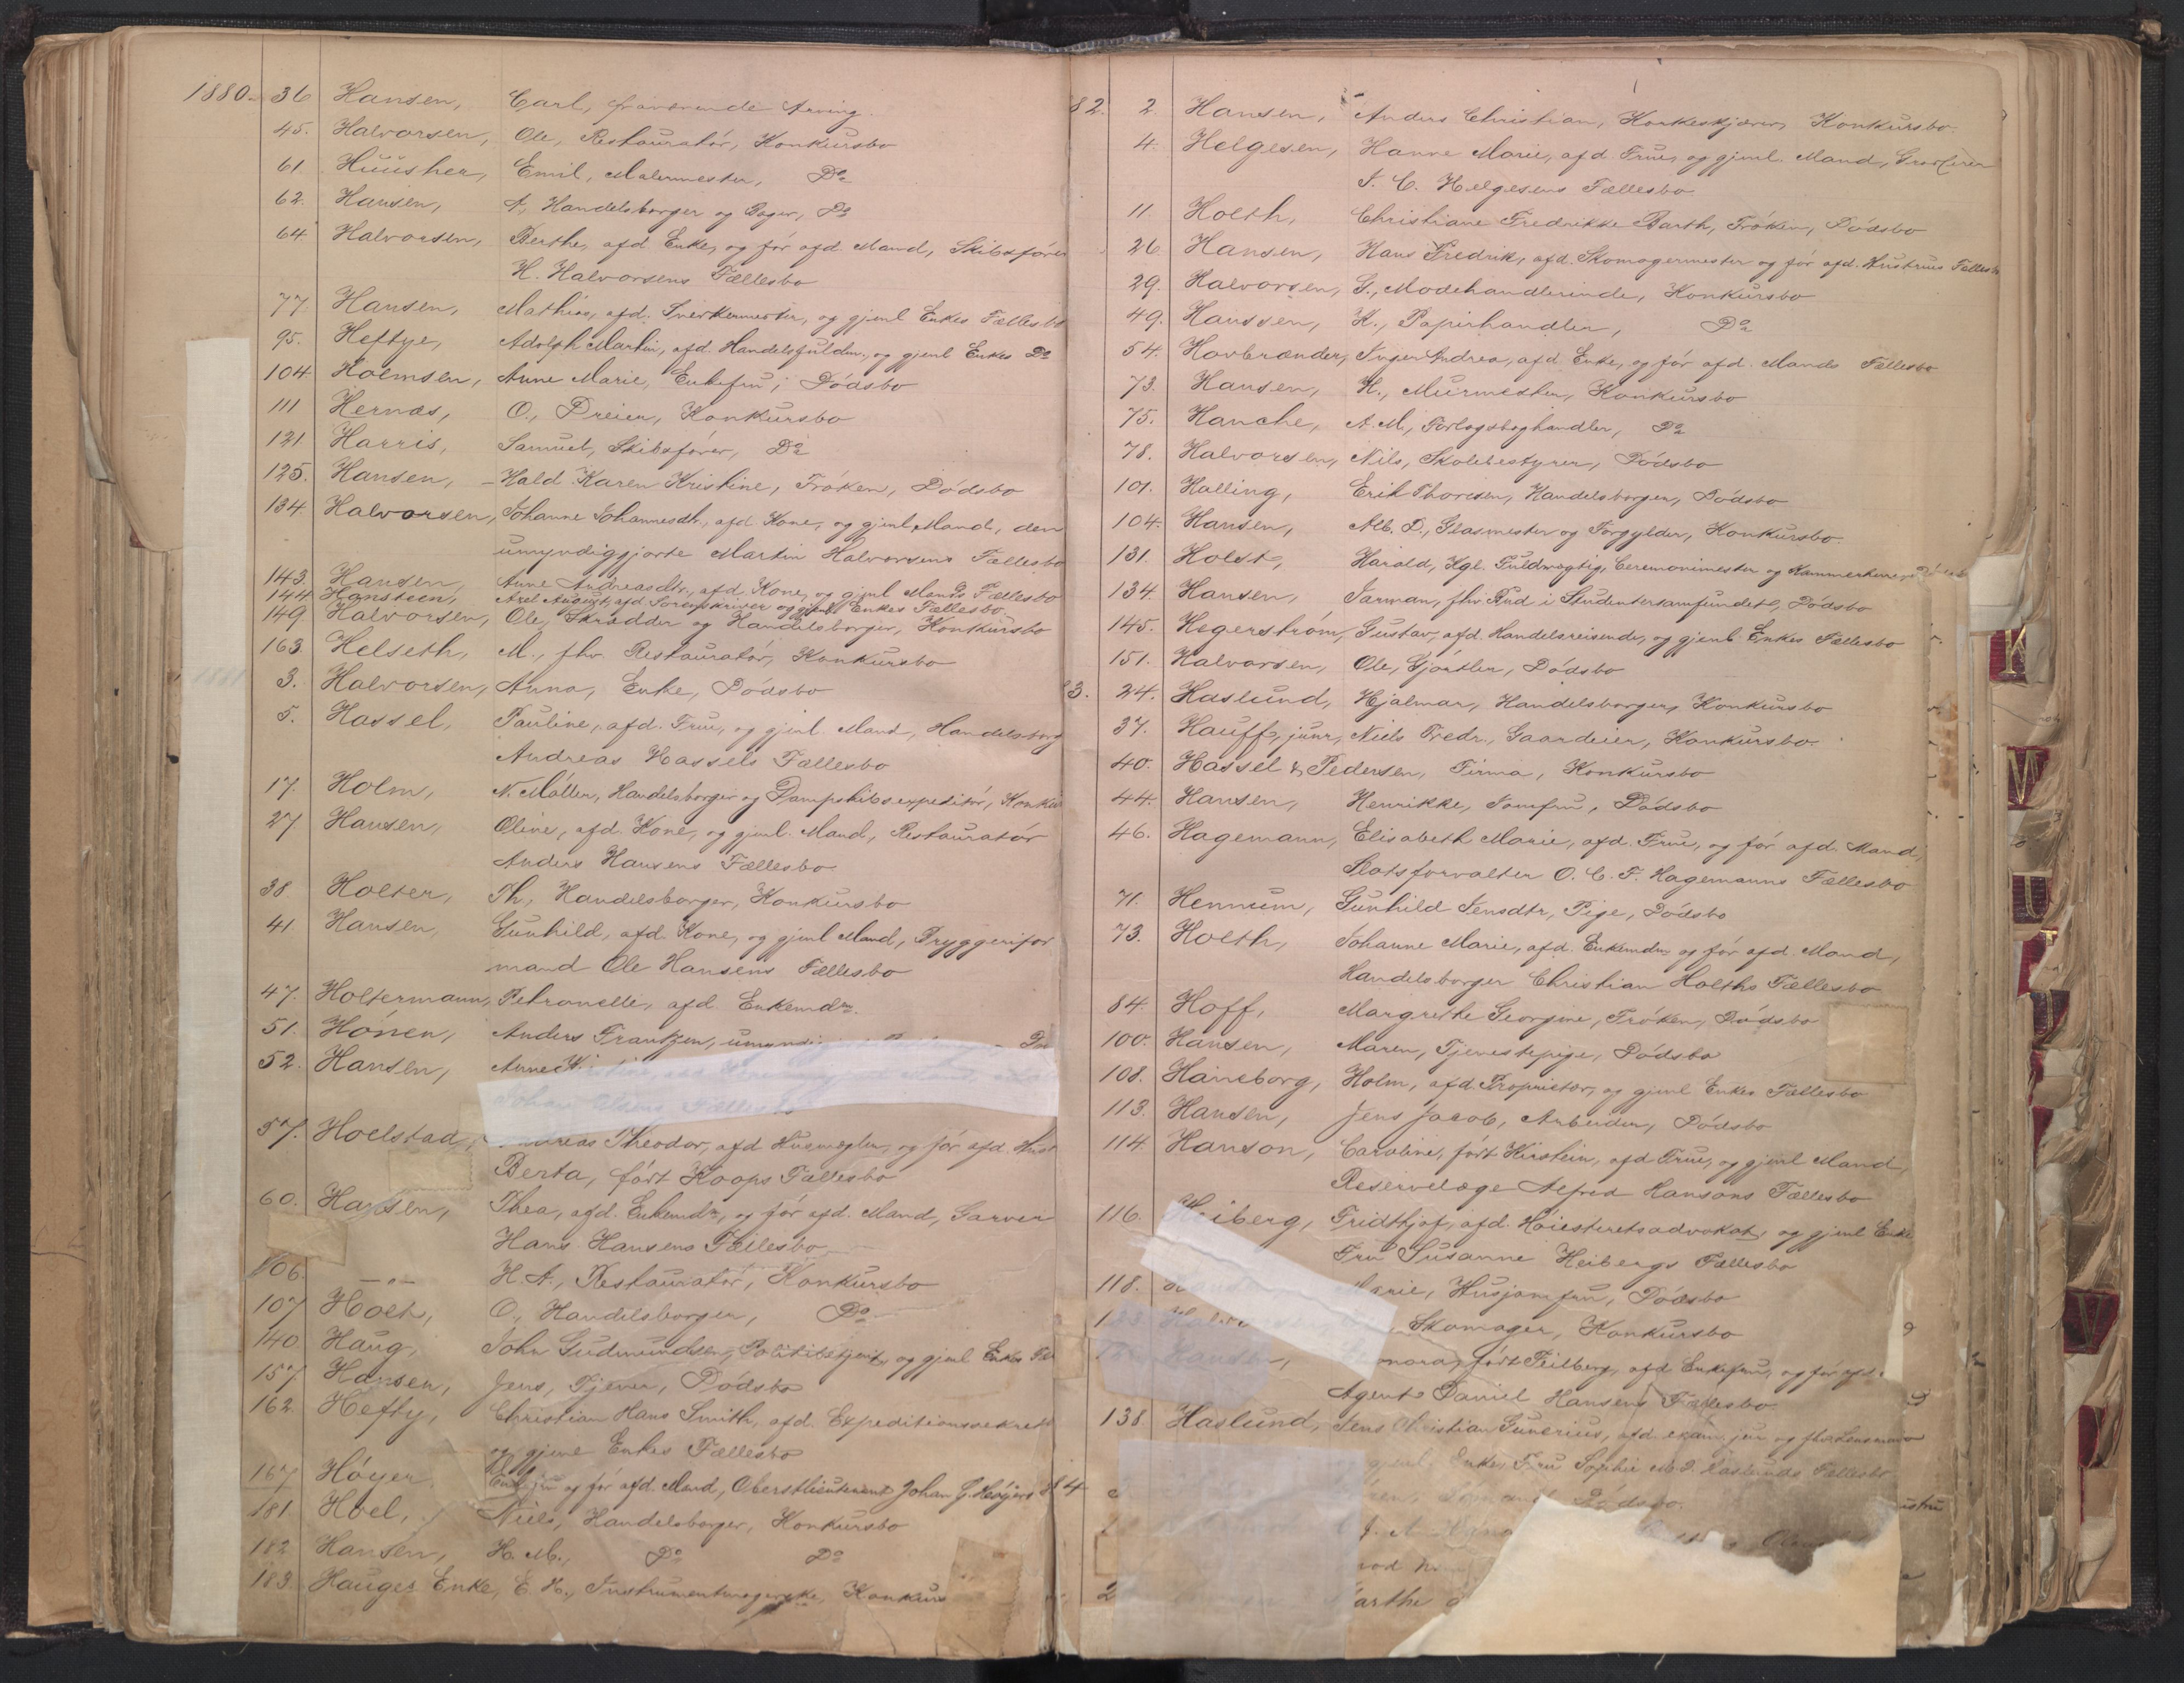 1880. 36 Hansen, Carl, fraværende Arving.
45. Halvorsen, Ole, Restauratör, Konkursbo
61. Huusher, Emil, Malermester, Do
62. Hansen, A., Handelsborger og Bager, Do
64. Halvorsen, Berthe, afd. Enke, og för afd Mand, Skibsförer
H. Halvorsens Fællesbo
77. Hansen, Mathias, afd. Snekkermester, og gjenl Enkes Fællesbo
95. Heftye, Adolph Martin, afd. Handelsfuldm. og gjenl Enkes Do
104. Holmsen, Anne Marie, Enkefru, Dödsbo
111 Hernæs, O., Dreier, Konkursbo
121. Harris, Samuel, Skibsförer, Do
125. Hansen, - Hald Karen Kristine, Fröken, Dödsbo
134. Halvorsen, Johanne Johannesdt., afd. Kone, og gjenl Mand, den
umyndiggjorte Martin Halvorsens Fællesbo
143. Hansen, Anne Andreasdtr., afd. Kone, og gjenl Mands Fællesbo
144 Hansteen, Axel August, afd Sorenskriver og gjenl Enkes Fællesbo.
149. Halvorsen, Ole, Skrædder og Handelsborger, Konkursbo
163. Helseth, M., fhv. Restauratör, Konkursbo
3. Halvorsen, Anna, Enke, Dödsbo
5. Hassel, Pauline, afd. Frue, og gjenl. Mand, Handelsborg
Andreas Hassels Fællesbo
17. Holm, N. Möller, Handelsborger og Dampskibsexpeditör, Konkur
27 Hansen, Oline, afd. Kone, og gjenl. Mand, Restauratör
Anders Hansens Fællesbo.
38 Holter, Th., Handelsborger, Konkursbo
41. Hansen, Gunhild, afd. Kone, og gjenl Mand, Bryggerifor
mand Ole Hansens Fællesbo
47. Holtermann, Petronelle, afd. Enkemdm.
51. Hönen, Anders Frantzen,
52. Hansen, Anne
Johan Fællesbo
57. Hoelstad, Theodor, afd Husmægler, og för afd. Hust
Berta, född Koops Fællesbo
60. Hansen, Thea, afd. Enkemdm, og för afd. Mand, Garver
Hans Hansens Fællesbo
106. — " — H. A., Restauratör, Konkursbo
107 Holt, O., Handelsborger, Do
140. Haug, John Gudmundsen, Politibetjent, og gjenl Enkes Fæ
157. Hansen, Jens, Tjener, Dödsbo
162. Hefty, Christian Hans Smith, afd. Expeditionssekret
og gjenl Enkes Fællesbo
167 Höyer Enkefru og för afd. Mand, Oberstlieutenant Johan G. Höyers
181. Hoel, Niels, Handelsborger, Konkursbo
182 Hansen, H. M., Do Do
183. Hauges Enke, E. H., Instrumentmagerske, Konkurs
82. 2. Hansen, Anders Christian, Korkeskjærer, Konkursbo.
4. Helgesen, Hanne Marie, afd. Frue, og gjenl. Mand, Grosserer
I. C. Helgesens Fællesbo
11. Holth, Christiane Fredrikke Barth, Fröken, Dödsbo
26 Hansen, Hans Fredrik, afd. Skomagermester og för afd. Hustrues Fællesb
29. Halvorsen, G., Modehandlerinde, Konkursbo
49. Hanssen, K., Papirhandler, Do
54. Havbrænder, Inger Andrea, afd. Enke, og för afd. Mands Fællesbo
73. Hansen, H., Murmester, Konkursbo
75. Hanche, A. M., Forlagsboghandler, Do
78. Halvorsen, Nils, Skolebestyrer, Dödsbo
101. Halling, Erik Thoresen, Handelsborger, Dödsbo
104. Hansen, Alb. D., Glasmester og Forgylder, Konkursbo.
131. Holst, Harald, Kgl. Fuldmægtig, Ceremonimester og Kammerherre, Dödsbo
134. Hansen, Jarman, fhv Bud i Studentersamfundet, Dödsbo
145. Hegerström, Gustav, afd. Handelsreisende, og gjenl. Enkes Fællesbo
151. Halvorsen, Ole, Gjörtler, Dödsbo
83. 24. Haslund, Hjalmar, Handelsborger, Konkursbo
37. Hauff, junr, Niels Fredr., Gaardeier, Konkursbo.
40. Hassel & Pedersen, Firma, Konkursbo
44. Hansen, Henrikke, Jomfru, Dödsbo
46. Hagemann, Elisabeth Marie, afd. Frue, og för afd. Mand,
Slotsforvalter O. C. F. Hagemanns Fællesbo
71. Hennum, Gunhild Jensdtr, Pige, Dödsbo
73. Holth, Johanne Marie, afd. Enkemdm og för afd Mand,
Handelsborger Christian Holths Fællesbo
84. Hoff, Margrethe Georgine, Fröken, Dödsbo
100. Hansen, Maren, Tjenestepige, Dödsbo
108. Haneborg, Holm, afd. Proprietær, og gjenl Enkes Fællesbo
113. Hansen, Jens Jacob, Arbeider, Dödsbo
114. Hanson, Caroline, född Kirstein, afd Frue, og gjenl Mand,
Reservelæge Alfred Hansons Fællesbo
116. Heiberg, Fridthjof, afd. Höiesteretsadvokat, og gjenl Enke
Fru Susanne Heibergs Fællesbo
118. Marie, Husjomfru, Dödsbo
Skomager, Konkursbo
född Feilberg, afd Enkefru, og för afd.
Agent Daniel Hansens Fællesbo
138. Haslund, Jens Christian Gunerius, afd. exam. jur. og fhv Lensmand
gjenl. Enke, Fru Sophie Haslunds Fællesbo
84 Dödsbo.
2 arthe